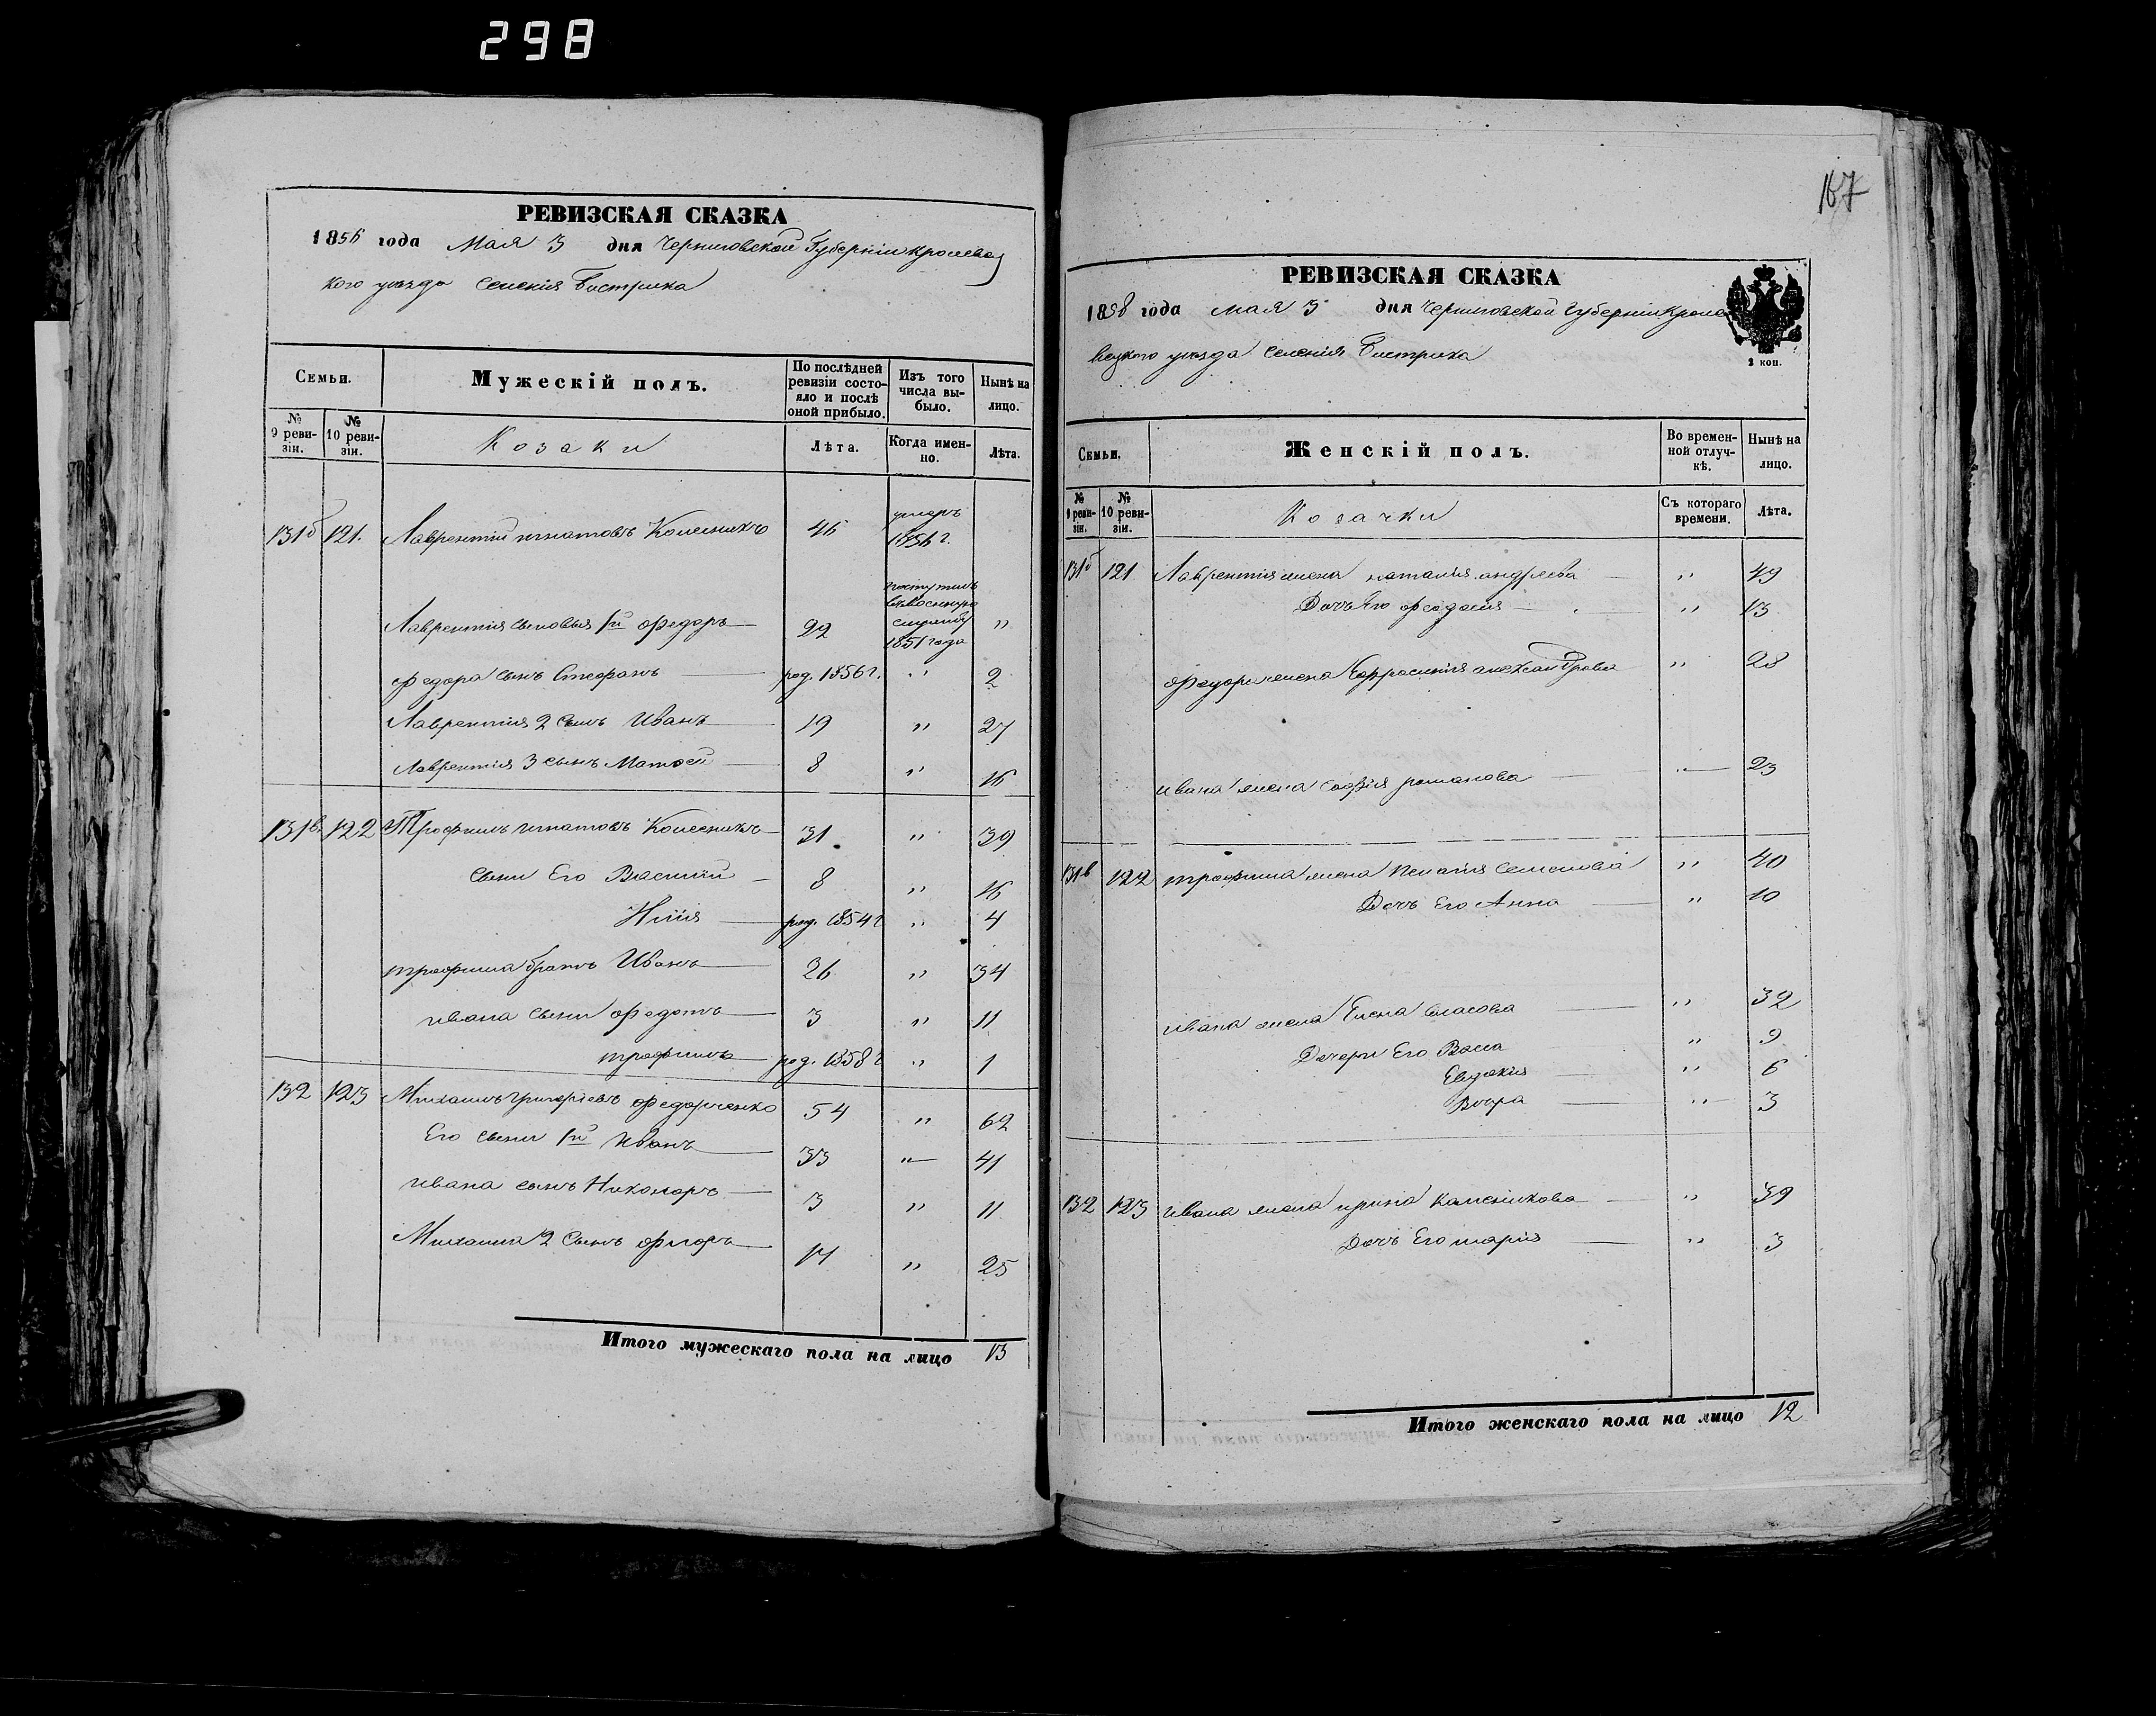 298
РЕВИЗСКАЯ СКАЗКА
1858 года Мая 3 дня Черниговской Губерніи Кролевец
кого уезда Селенія Бистрика
Семьи.
Мужескій полъ.
По послѣдней ревизіи состояло и послѣ оной прибыло.
Изъ того числа выбыло.
Нынѣ на лицо.
№ 9 ревизіи.
№ 10 ревизіи.
Козаки
Лѣта.
Когда именно.
Лѣта.
131б 121. Лаврентій Игнатовъ Колесникъ 46 умеръ 1856 г.
Лаврентія сыновья 1й Федоръ 22 поступилъ въ военную службу 1851 года "
Федора сынъ Стефанъ род. 1856 г. " 2
Лаврентія 2 сынъ Иванъ 19 " 27
Лаврентія 3 сынъ Матвей 8 " 16
131в 122 Трофимъ Игнатовъ Колесникъ 31 " 39
Сыни Его Василий 8 " 16
Илія род. 1854 г " 4
Трофима братъ Иванъ 26 " 34
Ивана сыни Федотъ 3 " 11
Трофимъ род. 1858 г " 1
132 123 Михаилъ Григоріевъ Федорченко 54 " 62
Его сыни 1й Иванъ 33 " 41
Ивана сынъ Никоноръ 3 " 11
Михаила 2 сынъ Флоръ 17 " 25
Итого мужескаго пола на лицо 13
167
РЕВИЗСКАЯ СКАЗКА
1858 года мая 3 дня Черниговской Губерніи Кроле
вецкого уезда селенія Бистрика
2 коп.
Семьи.
Женскій полъ.
Во временной отлучкѣ.
Нынѣ на лицо.
№ 9 ревизіи.
№ 10 ревизіи.
Козачки
Съ котораго времени.
Лѣта.
131б 121 Лаврентія жена Наталія Андреева " 49
Дочь Его Феодосія " 13
Федора жена Ефросинія Александрова " 28
Ивана жена Софія Романова " 23
131в 122 Трофима жена Пелагія Семенова " 40
Дочь Его Анна " 10
Ивана жена Елена Власова " 32
Дочери Его Васа " 9
Евдокія " 6
Вѣра " 3
132 123 Ивана жена Ирина Калеников​а " 39
Дочь Его Марія " 3
Итого женскаго пола на лицо 12